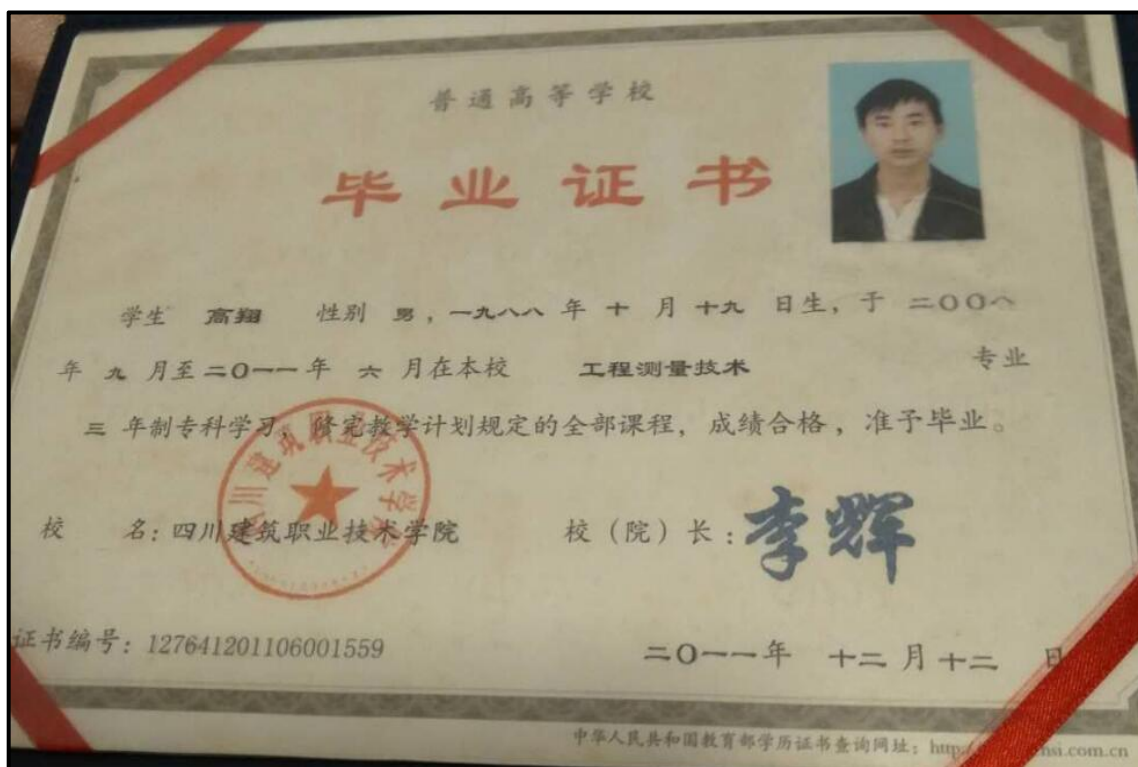 普通高等学校
毕业证书
学生 高翔 性别 男，一九八八 年 十 月 十九 日生，于 二〇〇八
年 九 月至二〇一一年 六 月在本校 工程测量技术 专业
三 年制专科学习，修完教学计划规定的全部课程，成绩合格，准予毕业。
四川建筑职业技术学院
校 名：四川建筑职业技术学院 校（院）长：李辉
证书编号：127641201106001559 二〇一一年 十二月十二 日
中华人民共和国教育部学历证书查询网址：http si.com.cn